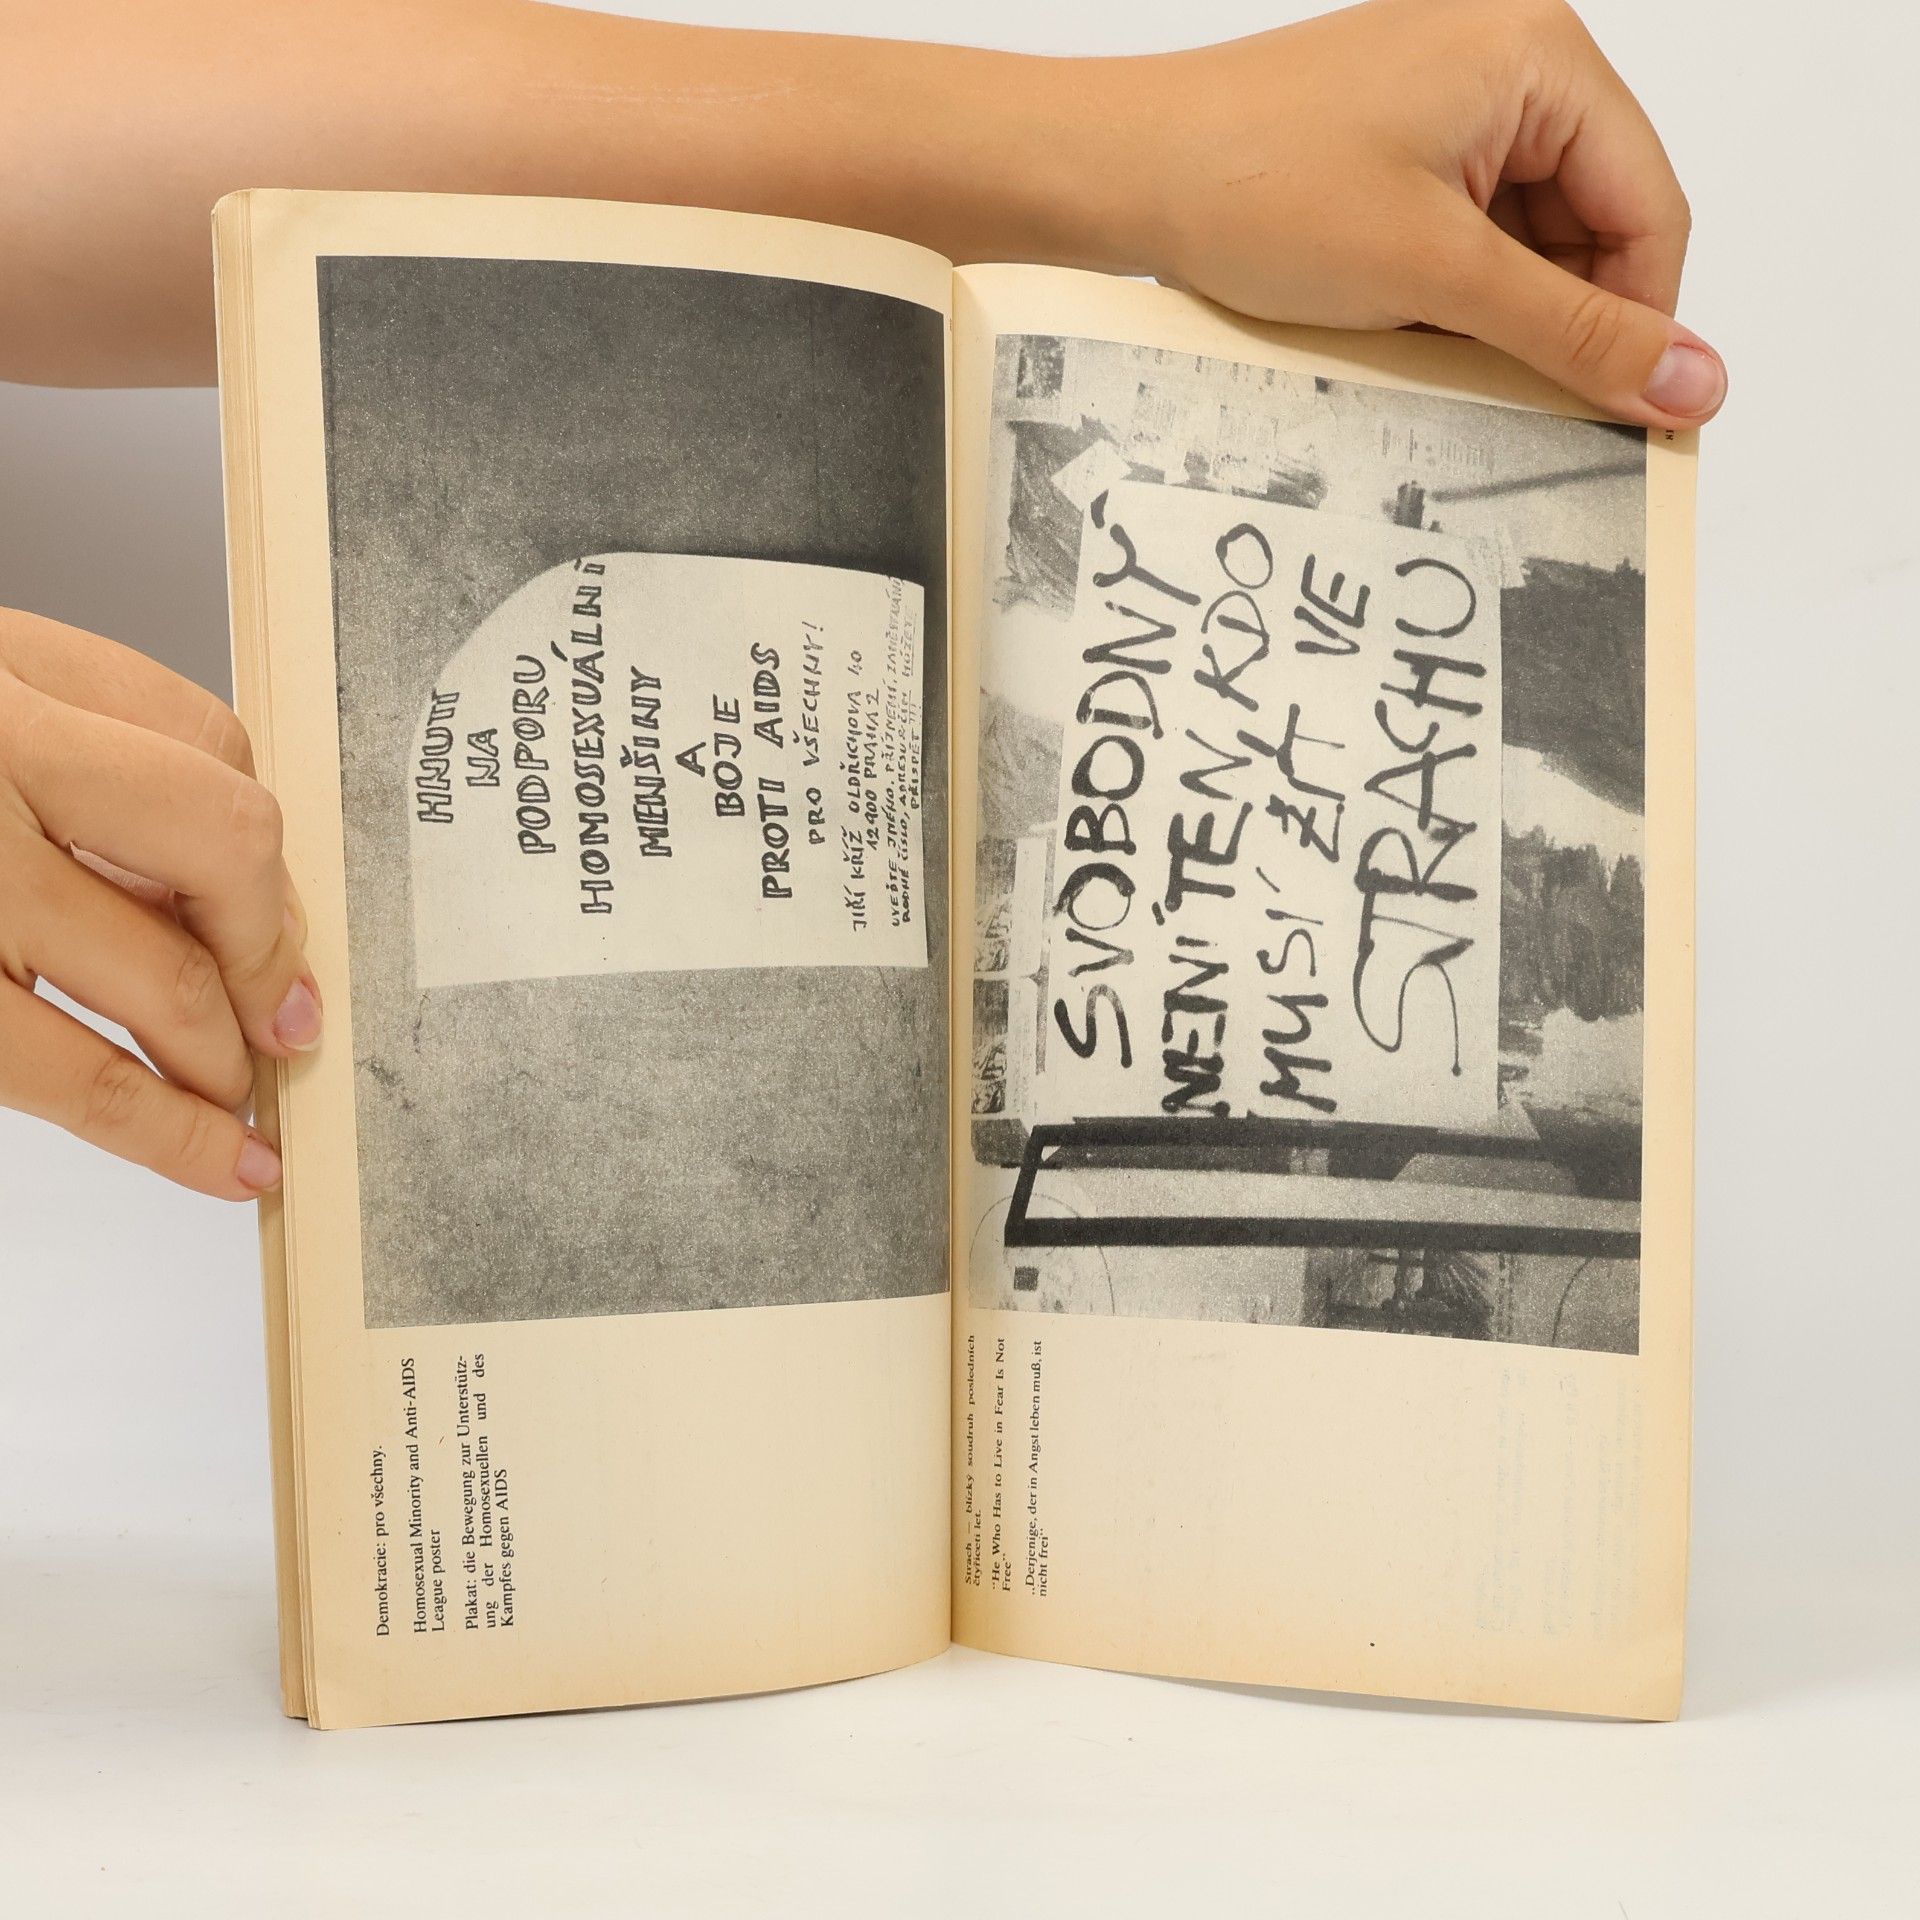 HNUTÍ
NA
PODPORU
HOMOSEXUÁLNÍ
MENŠINY
A
BOJE
PROTI AIDS
PRO VŠECHNY!
JIŘÍ KŘÍŽ OLDŘICHOVA 40
12900 PRAHA 2
UVEĎTE JMÉNO, PŘÍJMENÍ, ZAMĚSTNÁNÍ
RODNÉ ČÍSLO, ADRESU
Demokracie: pro všechny.
Homosexual Minority and Anti-AIDS
League poster
Plakat: die Bewegung zur Unterstütz-
ung der Homosexuellen und des
Kampfes gegen AIDS
SVOBODNÝ
NENÍ TEN KDO
MUSÍ ŽÍT VE
STRACHU
Strach — blízký soudruh posledních
čtyřiceti let.
"He Who Has to Live in Fear Is Not
Free"
„Derjenige, der in Angst leben muß, ist
nicht frei"
81